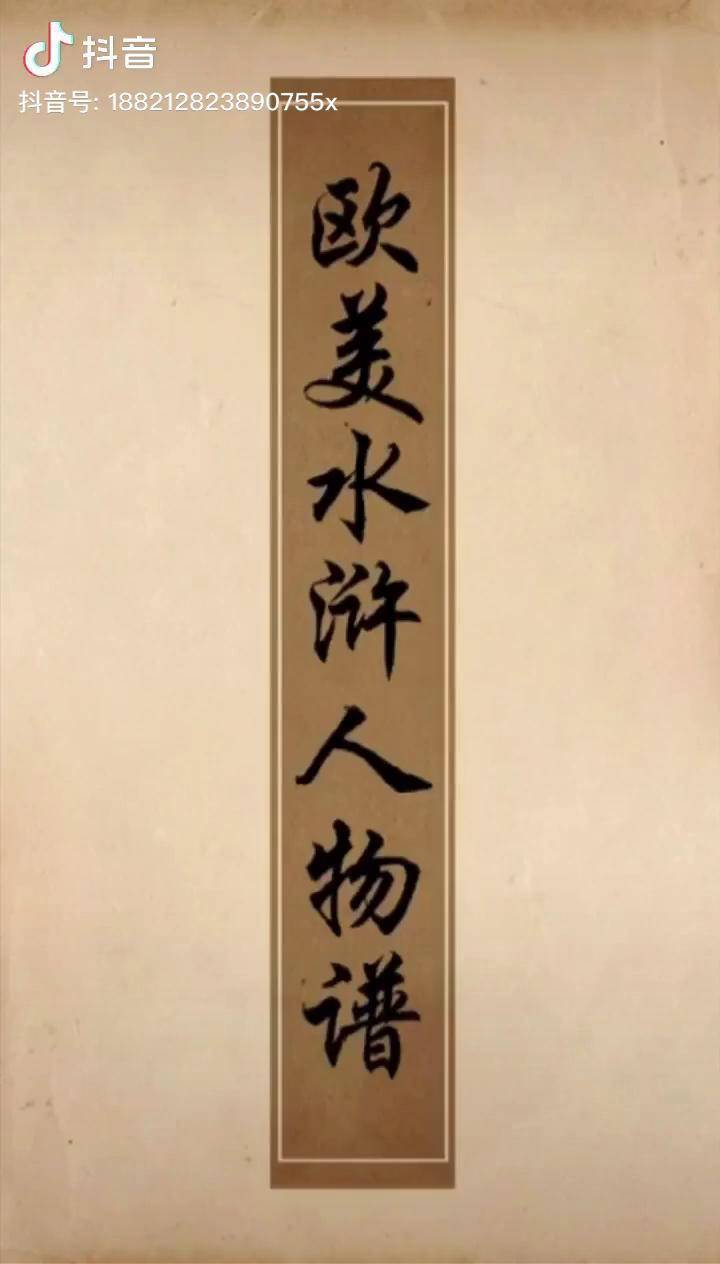 抖音
抖音号: 188212823890755x
欧美水浒人物谱